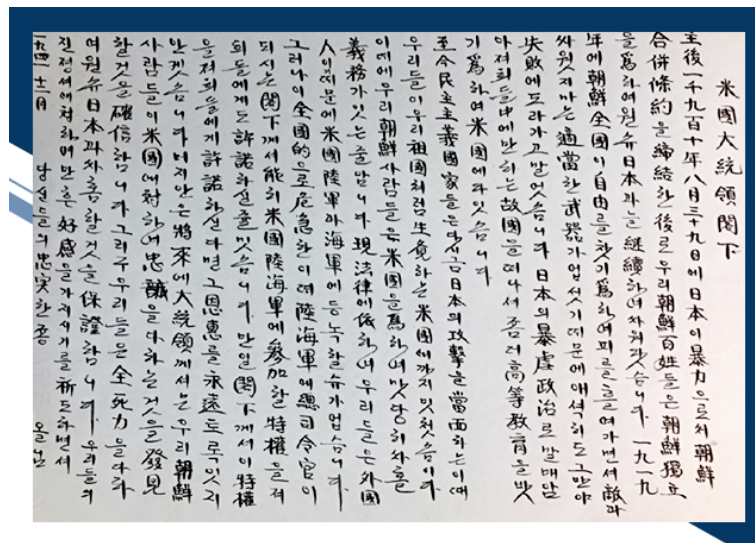 米國大統領閣下
主後一千九百十年八月三十九日에日本이暴力으로써朝鮮
合併條約을締結한後로우리朝鮮百姓들은朝鮮獨立
을爲하여원슈日本과는繼續하여싸워왓습니다. 一九一九
年에朝鮮全國이自由를찻기爲하여피를흘녀가면셔敵과
싸웟지마는適當한武器가업섯기때문에애셕히도그만야
失敗에도라가고말엇습니다 日本의暴虐政治로말매암
아져희들中에만히는故國을떠나서좀더高等敎育을밧
기爲하여米國에와잇슴니다
至今民主主義國家들은다시금日本의攻擊을當面하는이때
우리들이우리祖國처럼生覺하는米國에까지밋첫습니다.
이때에우리朝鮮사람들은米國을爲하여맛당히싸흘
義務가잇는줄압니다 現法律에依하여우리들은外國
人이때문에米國陸軍과海軍에등녹할슈가업습니다.
그러나이全國的으로危急한이때陸海軍에總司令官이
되시는閣下께서能히米國陸海軍에參加할特權을져
희들에게도許諾하실줄밋습니다. 만일閣下께서이特權
을져희들에게許諾하신다면그恩惠를永遠토록잇지
안켓습니다 머지안은將來에大統領께서는우리朝鮮
사람들이米國에對하여忠誠을다하는것을發見
할것을確信합니다 그리구우리들은全死力을다하
여원슈日本과싸흠할것을保證합니다. 우리들의
진졍셔에對하며만흔好感을가지시기를祈도하면셔
一九四一 十二月 당신들의忠実한종 올님